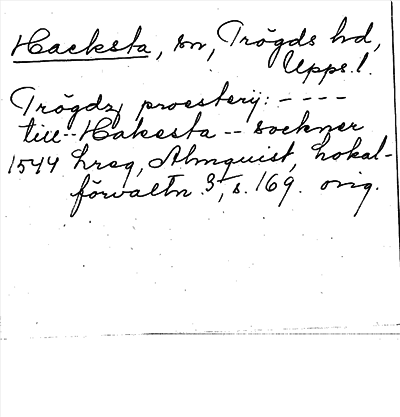 Hacksta, sn, Trögds hd,
Upps.l.
Trögdz proesterij: ----
till -- Hakesta -- sockner
1544 hreg, Almquist, Lokal-
förvaltn 3, s. 169. orig.